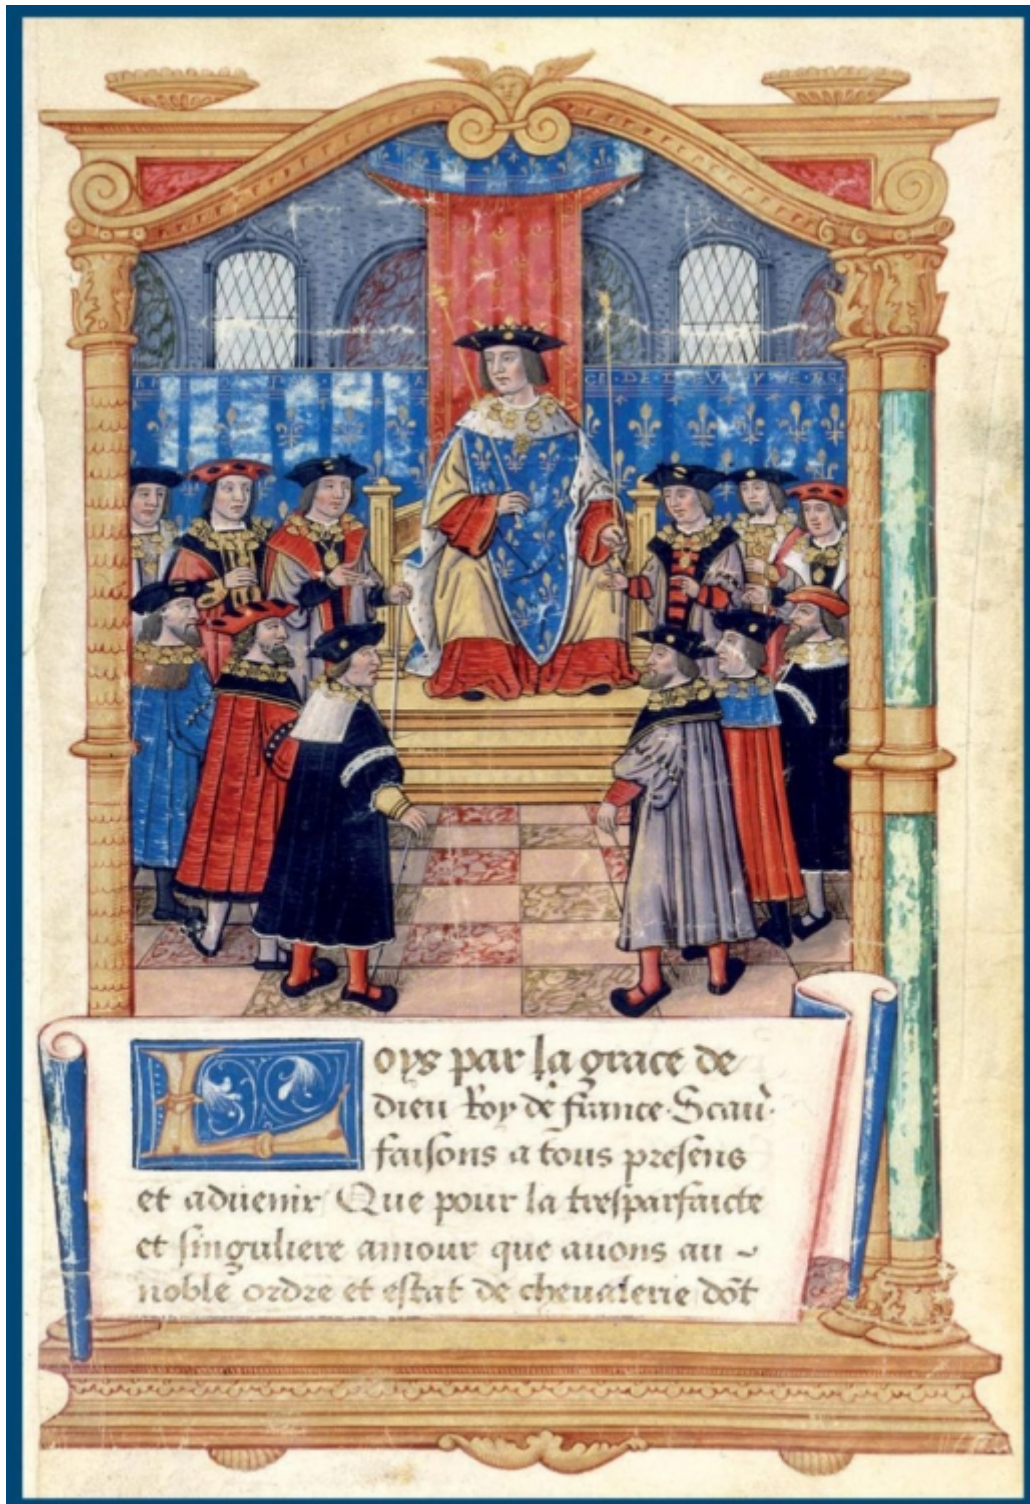 Loys par la grace de
dieu Roy de france. Scauˀ.
faisons a tous presens
et aduenir Que pour la tresparfaicte
et singuliere amour que auons au ~
noble ordre et estat de cheualerie dōt